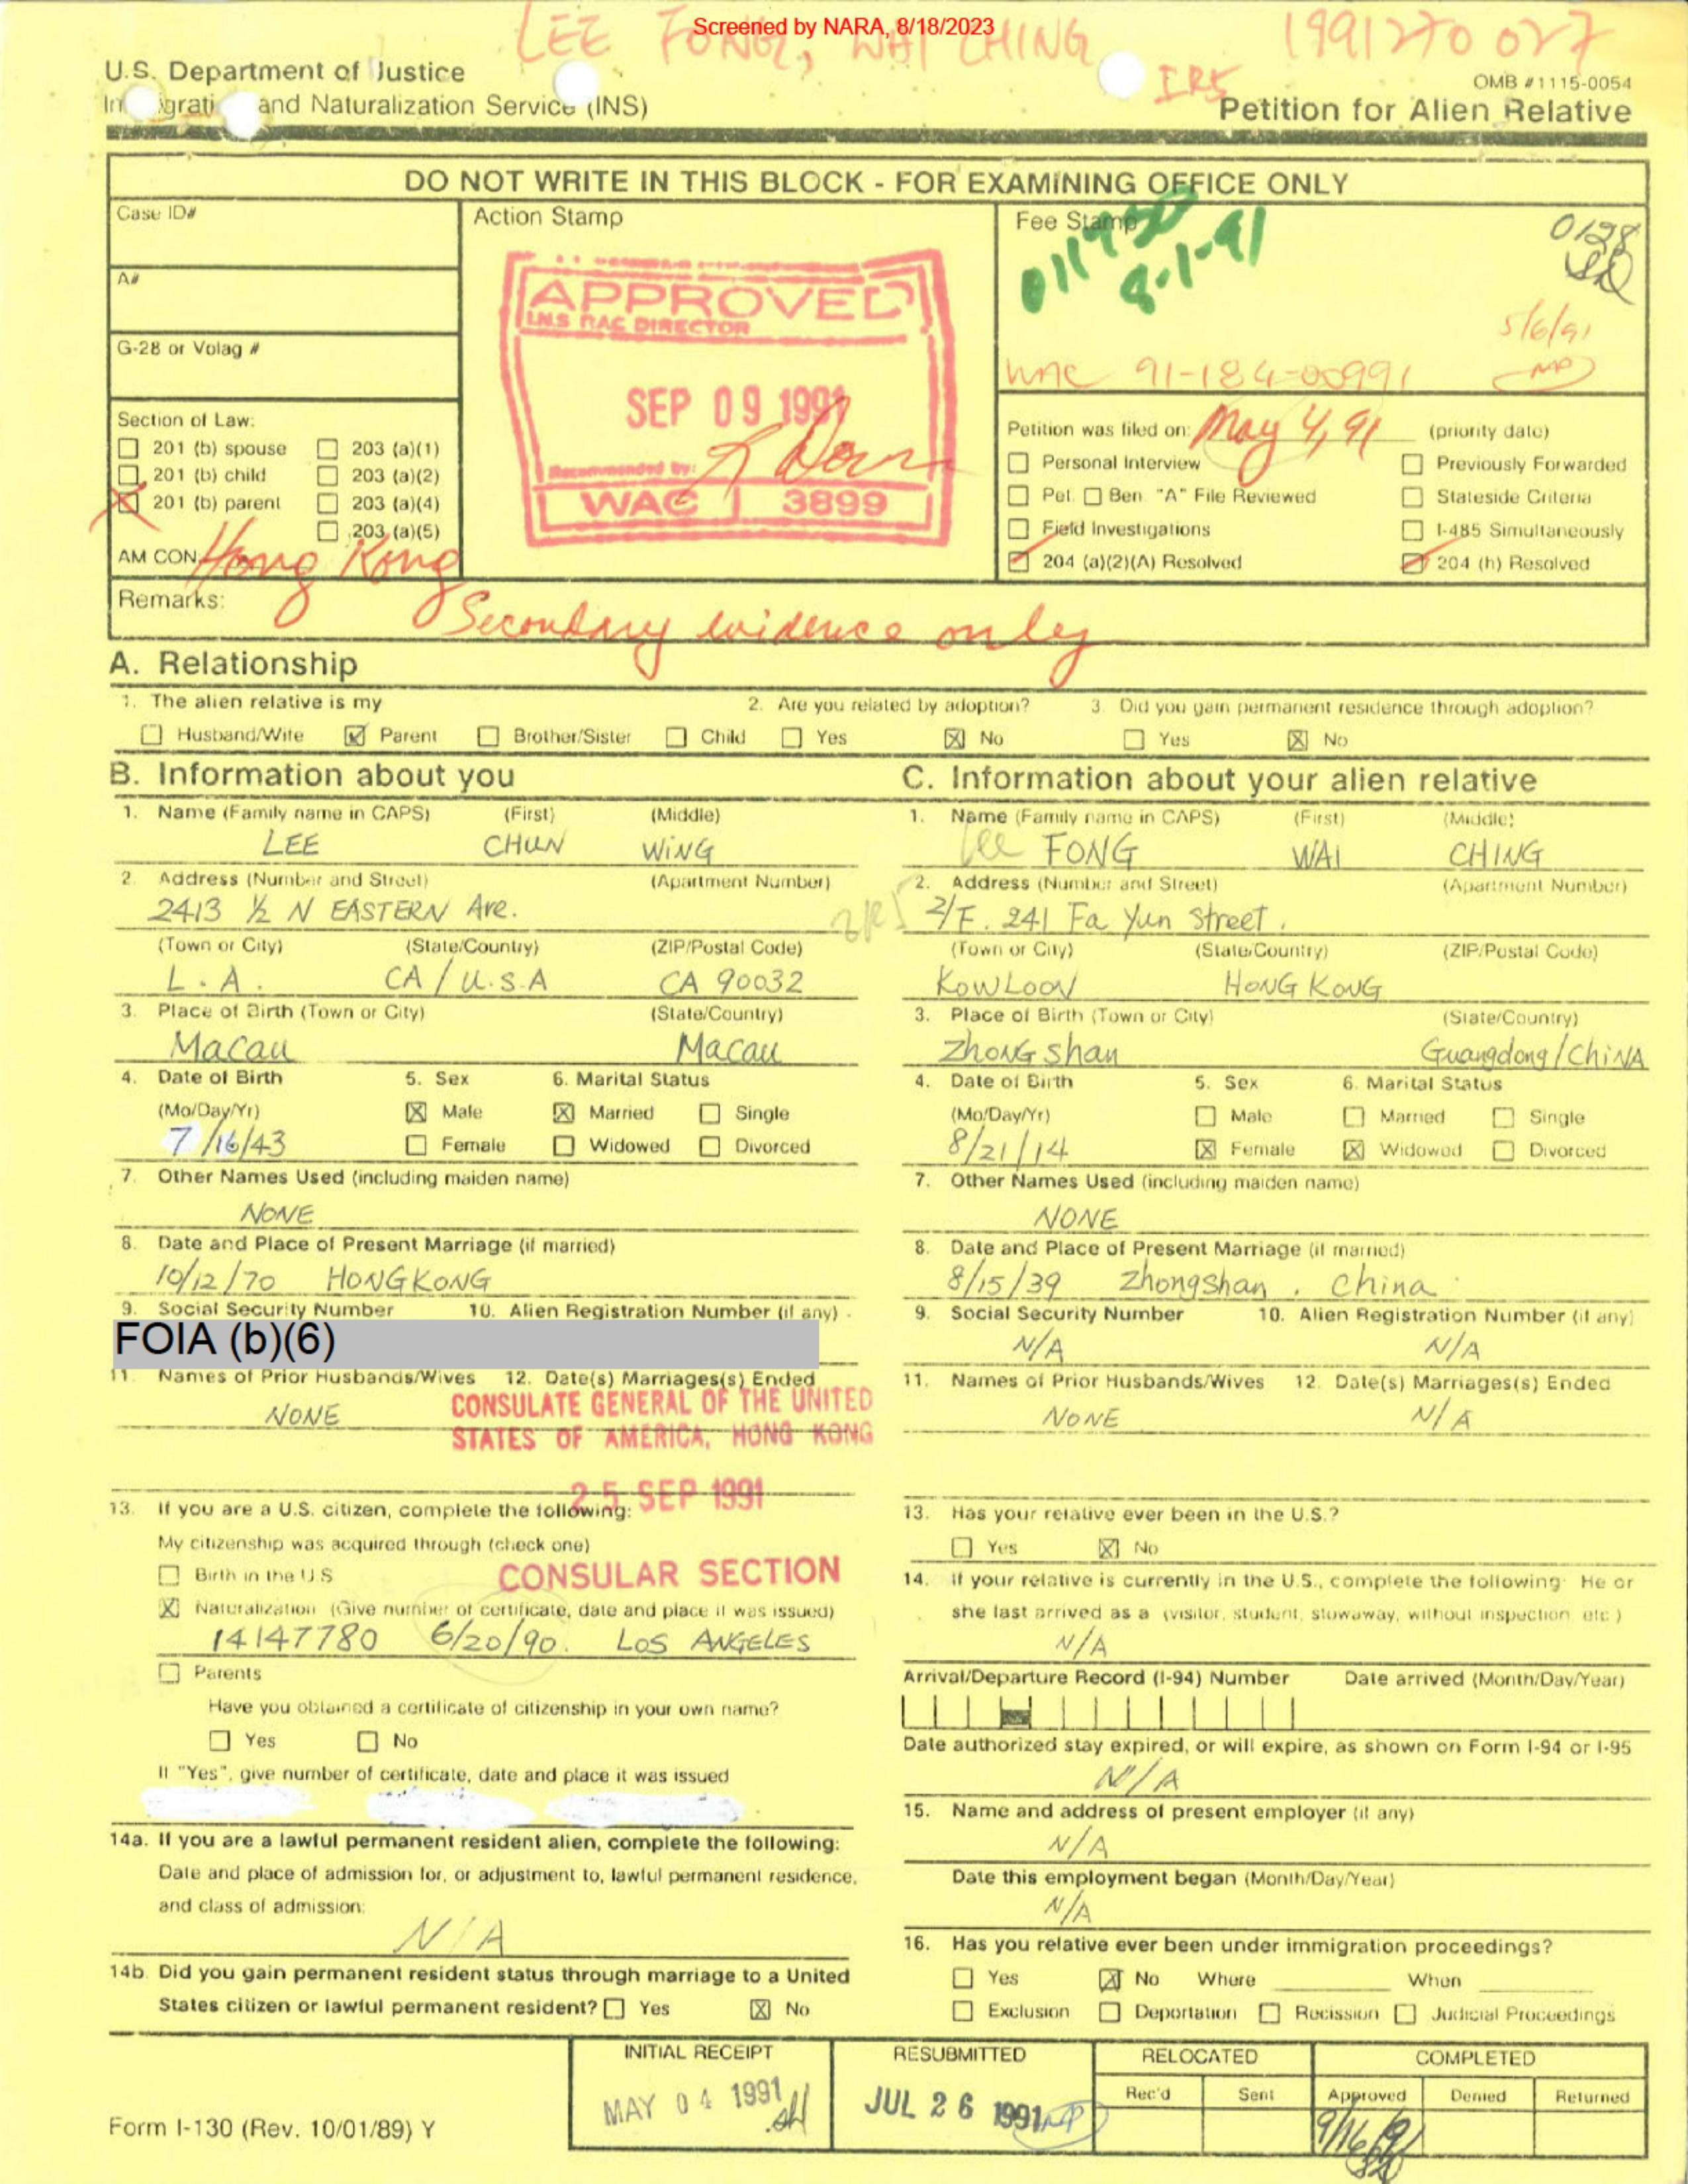 Screened by NARA, 8/18/2023
LEE FONG, WAI CHING
1991270 027
IR5
U.S. Department of Justice
OMB #1115-0054
Immigration and Naturalization Service (INS)
Petition for Alien Relative
DO NOT WRITE IN THIS BLOCK - FOR EXAMINING OFFICE ONLY
Case ID#
A#
G-28 or Volag #
Section of Law:
☐ 201 (b) spouse ☐ 203 (a)(1)
☐ 201 (b) child ☐ 203 (a)(2)
☒ 201 (b) parent ☐ 203 (a)(4)
☐ 203 (a)(5)
AM CON: Hong Kong
Action Stamp
APPROVED
I.N.S RAC DIRECTOR
SEP 09 1991
Recommended by:
WAC 3899
Fee Stamp
8-1-91
0128
5/6/91
WAC 91-184-00991
Petition was filed on: May 4, 91 (priority date)
☐ Personal Interview ☐ Previously Forwarded
☐ Pet. ☐ Ben. "A" File Reviewed ☐ Stateside Criteria
☐ Field Investigations ☐ I-485 Simultaneously
☑ 204 (a)(2)(A) Resolved ☑ 204 (h) Resolved
Remarks: Secondary evidence only
A. Relationship
1. The alien relative is my 2. Are you related by adoption? 3. Did you gain permanent residence through adoption?
☐ Husband/Wife ☒ Parent ☐ Brother/Sister ☐ Child ☐ Yes ☒ No ☐ Yes ☒ No
B. Information about you
1. Name (Family name in CAPS) (First) (Middle)
LEE CHUN WING
2. Address (Number and Street) (Apartment Number)
2413 ½ N EASTERN Ave.
(Town or City) (State/Country) (ZIP/Postal Code)
L.A. CA / U.S.A CA 90032
3. Place of Birth (Town or City) (State/Country)
Macau Macau
4. Date of Birth 5. Sex 6. Marital Status
(Mo/Day/Yr) ☒ Male ☒ Married ☐ Single
7/16/43 ☐ Female ☐ Widowed ☐ Divorced
7. Other Names Used (including maiden name)
NONE
8. Date and Place of Present Marriage (if married)
10/12/70 HONGKONG
9. Social Security Number 10. Alien Registration Number (if any)
FOIA (b)(6)
11. Names of Prior Husbands/Wives 12. Date(s) Marriages(s) Ended
NONE
CONSULATE GENERAL OF THE UNITED
STATES OF AMERICA, HONG KONG
25 SEP 1991
CONSULAR SECTION
13. If you are a U.S. citizen, complete the following:
My citizenship was acquired through (check one)
☐ Birth in the U.S
☒ Naturalization (Give number of certificate, date and place it was issued)
14147780 6/20/90. LOS ANGELES
☐ Parents
Have you obtained a certificate of citizenship in your own name?
☐ Yes ☐ No
If "Yes", give number of certificate, date and place it was issued
14a. If you are a lawful permanent resident alien, complete the following:
Date and place of admission for, or adjustment to, lawful permanent residence,
and class of admission:
N/A
14b. Did you gain permanent resident status through marriage to a United
States citizen or lawful permanent resident? ☐ Yes ☒ No
C. Information about your alien relative
1. Name (Family name in CAPS) (First) (Middle)
Lee FONG WAI CHING
2. Address (Number and Street) (Apartment Number)
2/F. 241 Fa Yun Street.
(Town or City) (State/Country) (ZIP/Postal Code)
KOWLOON HONG KONG
3. Place of Birth (Town or City) (State/Country)
ZHONG shan Guangdong/CHINA
4. Date of Birth 5. Sex 6. Marital Status
(Mo/Day/Yr) ☐ Male ☐ Married ☐ Single
8/21/14 ☒ Female ☒ Widowed ☐ Divorced
7. Other Names Used (including maiden name)
NONE
8. Date and Place of Present Marriage (if married)
8/15/39 Zhongshan. China
9. Social Security Number 10. Alien Registration Number (if any)
N/A N/A
11. Names of Prior Husbands/Wives 12. Date(s) Marriages(s) Ended
NONE N/A
13. Has your relative ever been in the U.S.?
☐ Yes ☒ No
14. If your relative is currently in the U.S., complete the following: He or
she last arrived as a (visitor, student, stowaway, without inspection etc.)
N/A
Arrival/Departure Record (I-94) Number Date arrived (Month/Day/Year)
Date authorized stay expired, or will expire, as shown on Form I-94 or I-95
N/A
15. Name and address of present employer (if any)
N/A
Date this employment began (Month/Day/Year)
N/A
16. Has you relative ever been under immigration proceedings?
☐ Yes ☒ No Where When
☐ Exclusion ☐ Deportation ☐ Recission ☐ Judicial Proceedings
INITIAL RECEIPT RESUBMITTED RELOCATED COMPLETED
Rec'd Sent Approved Denied Returned
MAY 04 1991 JUL 26 1991 9/16/91
Form I-130 (Rev. 10/01/89) Y